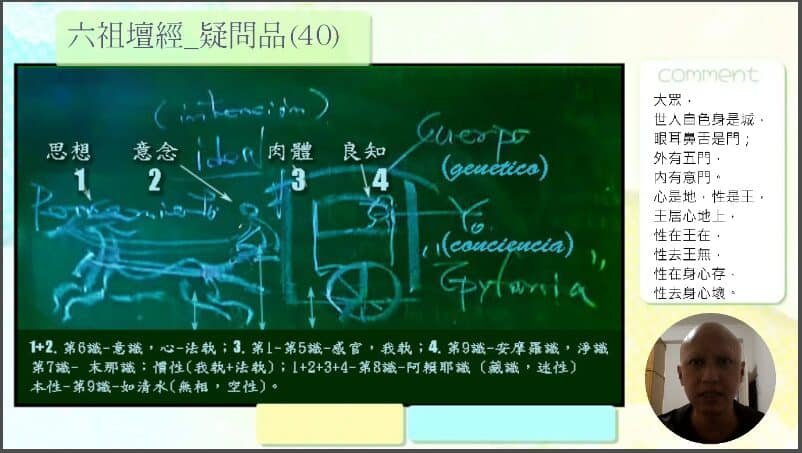 六祖壇經_疑問品(40)
comment
大眾，
世人自色身是城，
眼耳鼻舌是門；
外有五門，
內有意門。
心是地，性是王，
王居心地上，
性在王在，
性去王無，
性在身心存，
性去身心壞。
(intención)
思想
1
意念
2
肉體
3
良知
4
Cuerpo
(genetico)
Yo
(conciencia)
1+2. 第6識-意識，心-法執；3. 第1-第5識-感官，我執；4. 第9識-安摩羅識，淨識
第7識- 末那識：慣性(我執+法執)；1+2+3+4-第8識-阿賴耶識 (藏識，迷性)
本性-第9識-如清水(無相，空性)。